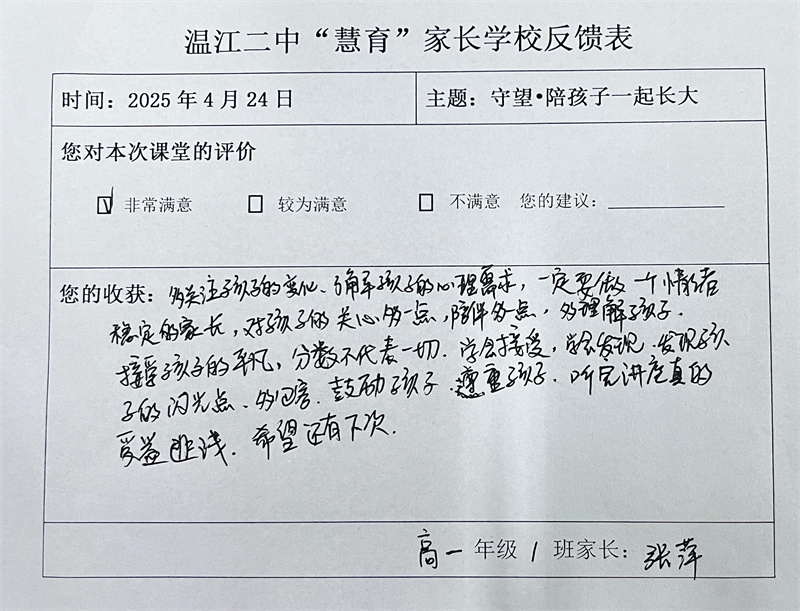 温江二中“慧育”家长学校反馈表
时间：2025年4月24日 主题：守望•陪孩子一起长大
您对本次课堂的评价
☑ 非常满意 □ 较为满意 □ 不满意 您的建议：
您的收获：多关注孩子的变化、了解孩子的心理需求，一定要做一个情绪
稳定的家长，对孩子的关心多一点，陪伴多一点，多理解孩子.
接受孩子的平凡，分数不代表一切.学会接受，学会发现.发现孩
子的闪光点、多回容.鼓励孩子.尊重孩子.听完讲座真的
受益匪浅.希望还有下次.
高一年级1班家长：张萍